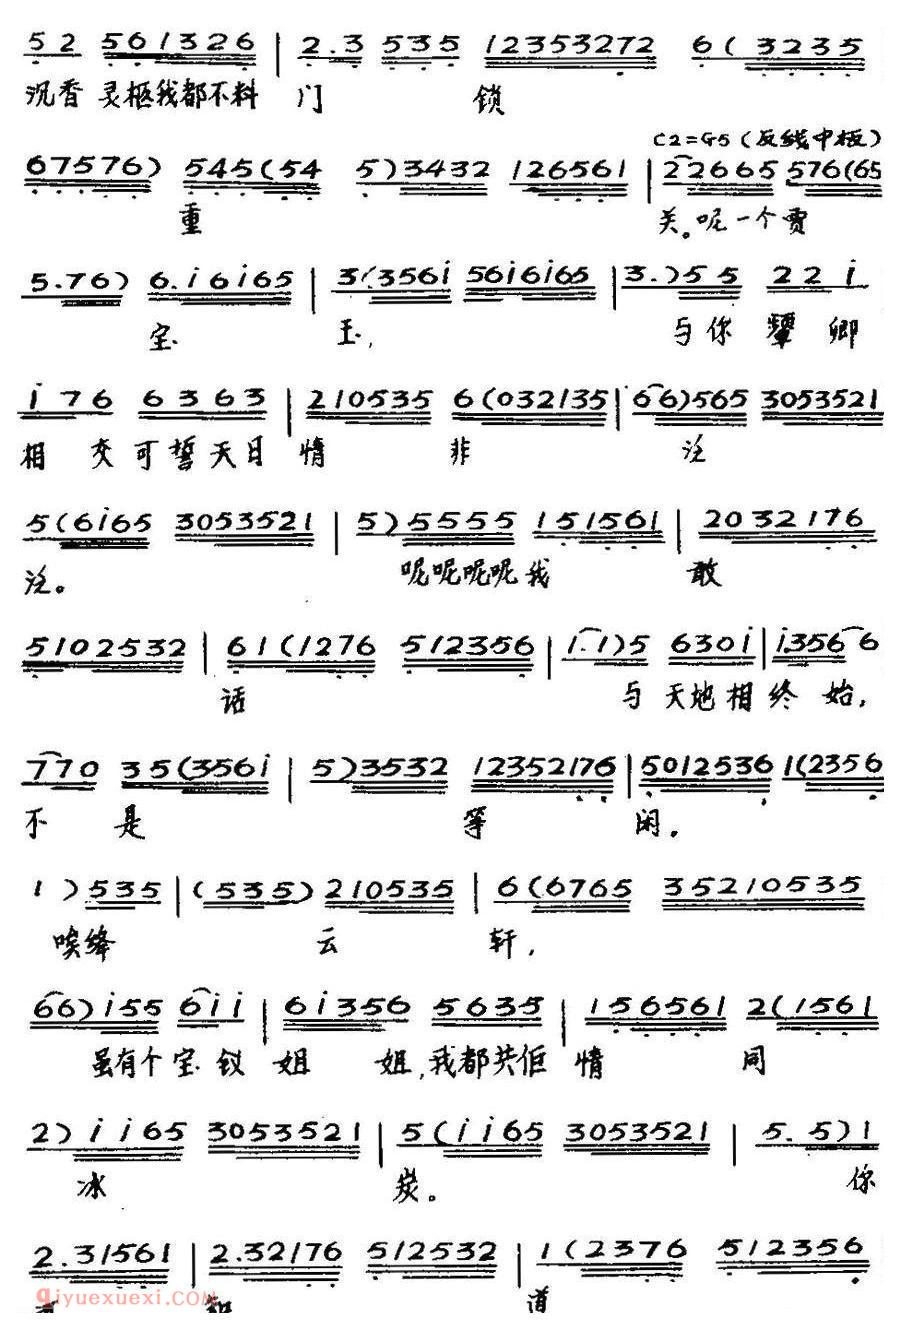 5 2 561326 | 2.3 535 12353272 6(3235
沉香 灵柩我都不料 门 锁
C2=G5(反线中板)
67576) 545(54 5)3432 126561 | 22665 576(65
重 关。呢一个贾
5.76) 6.i6i65 | 3(356i 56i6i65 | 3.)55 22i
宝 玉, 与你颦卿
i76 6363 | 210535 6(032135 | 66)565 3053521
相交可誓天日 情 非 泛
5(6i65 3053521 | 5)5555 151561 | 2032176
泛。 呢呢呢呢我 敢
5102532 | 61(1276 512356 | 1.1)5 630i | i.356 6
话 与天地相终始,
770 35(356i | 5)3532 12352176 | 5012536 1(2356
不是 等 闲。
1)535 | (535)210535 | 6(6765 35210535
唉绛 云 轩,
66)i55 6ii | 6i356 5635 | 156561 2(1561
虽有个宝钗 姐 姐,我都共佢 情 同
2)ii65 3053521 | 5(ii65 3053521 | 5.5)1
冰 炭。 你
2.31561 | 2.32176 512532 | 1(2376 512356
道
qiyuexuexi.COM